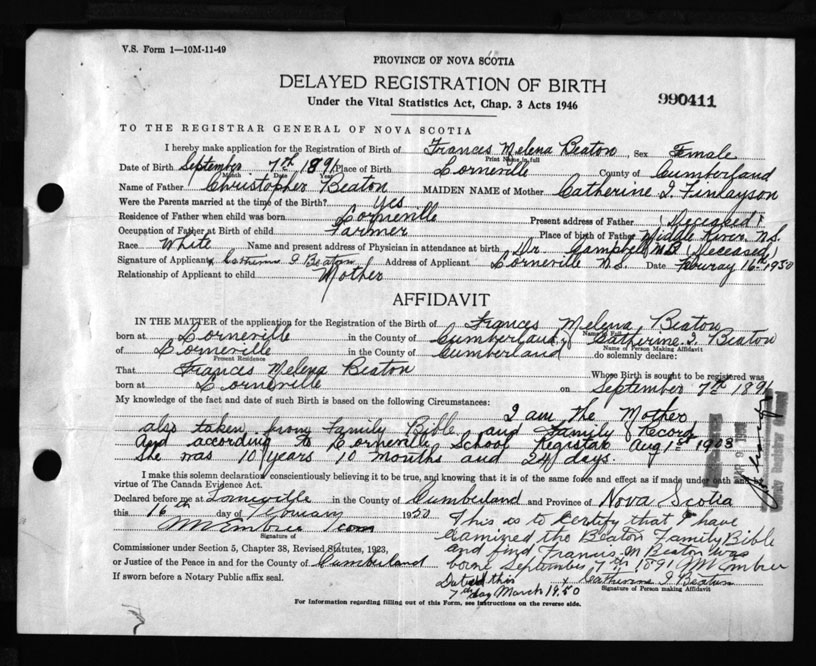 V.S. Form 1—10M-11-49
PROVINCE OF NOVA SCOTIA
DELAYED REGISTRATION OF BIRTH
Under the Vital Statistics Act, Chap. 3 Acts 1946
990411
TO THE REGISTRAR GENERAL OF NOVA SCOTIA
I hereby make application for the Registration of Birth of Frances Melena Beaton, Sex Female
Print Name in full
Date of Birth September 7th 1891 Place of Birth Lorneville County of Cumberland
Month Date Year
Name of Father Christopher Beaton MAIDEN NAME of Mother Catherine I. Finlayson
Were the Parents married at the time of the Birth? yes
Residence of Father when child was born Lorneville Present address of Father (Deceased)
Occupation of Father at Birth of child Farmer Place of birth of Father Middle River, N.S.
Race White Name and present address of Physician in attendance at birth Dr. Campbell M.D. (Deceased)
Signature of Applicant x Catherine I Beaton Address of Applicant Lorneville N.S. Date 16th 1950
Relationship of Applicant to child Mother
AFFIDAVIT
IN THE MATTER of the application for the Registration of Birth of Frances Melena Beaton
Name in Full
born at Lorneville in the County of Cumberland, I Catherine I. Beaton
Name of Person Making Affidavit
of Lorneville in the County of Cumberland do solemnly declare:
Present Residence
That Frances Melena Beaton Whose Birth is sought to be registered was
born at Lorneville on September 7th 1891
My knowledge of the fact and date of such Birth is based on the following Circumstances:
I am the Mother
also taken from Family Bible and Family Record
And according to Lorneville School Registar Aug 1st 1903
She was 10 years 10 months and 24 days.
I make this solemn declaration conscientiously believing it to be true, and knowing that it is of the same force and effect as if made under oath and
virtue of The Canada Evidence Act.
Declared before me at Lorneville in the County of Cumberland and Province of Nova Scotia
this 16th day of February 1950
Signature of
Commissioner under Section 5, Chapter 38, Revised Statutes, 1923,
or Justice of the Peace in and for the County of Cumberland
If sworn before a Notary Public affix seal.
This is to Certify that I have
Examined the Beaton Family Bible
and find Francis M Beaton was
borne September 7th 1891 M Embree
Dated this
7th day March 1950
x Catherine I Beaton
Signature of Person making Affidavit
For Information regarding filling out of this Form, see instructions on the reverse side.